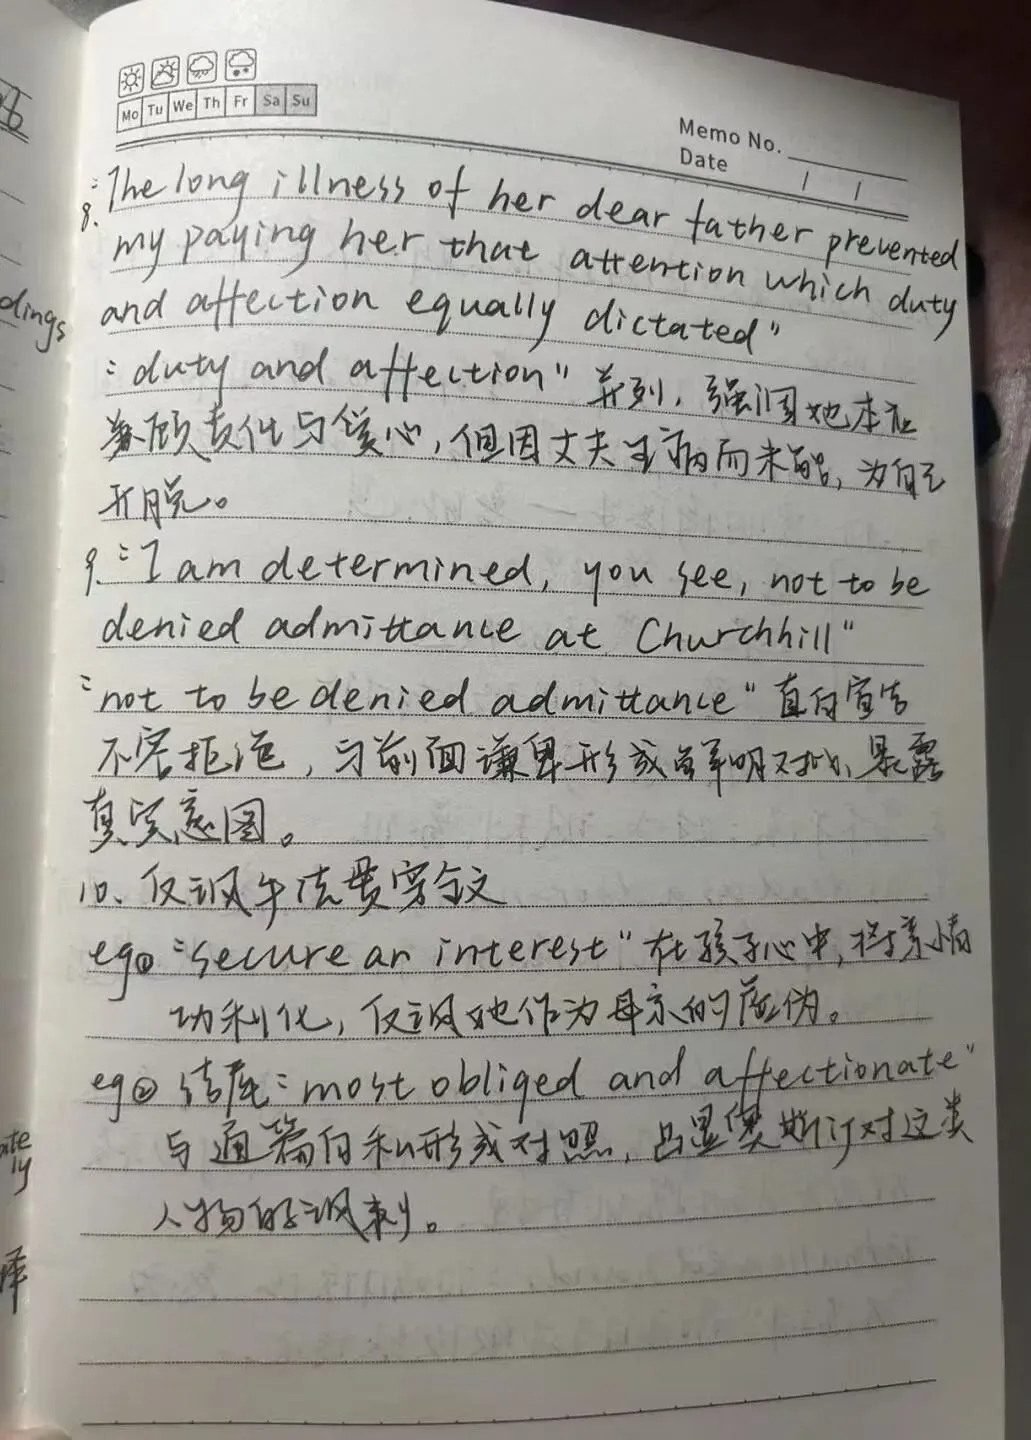 Mo Tu We Th Fr Sa Su
Memo No.
Date / /
8. "The long illness of her dear father prevented
my paying her that attention which duty
and affection equally dictated"
"duty and affection" 并列，强调她本应
兼顾责任与爱心，但因丈夫生病而未能，为自己
开脱。
9. "I am determined, you see, not to be
denied admittance at Churchhill"
"not to be denied admittance" 直白宣告
不容拒绝，与前面谦卑形成鲜明对比，暴露
真实意图。
10、反讽手法贯穿全文
eg① "secure an interest" 在孩子心中，将亲情
功利化，反讽她作为母亲的虚伪。
eg② 结尾 "most obliged and affectionate"
与通篇自私形成对照，凸显奥斯汀对这类
人物的讽刺。
dings
ate
ly
译